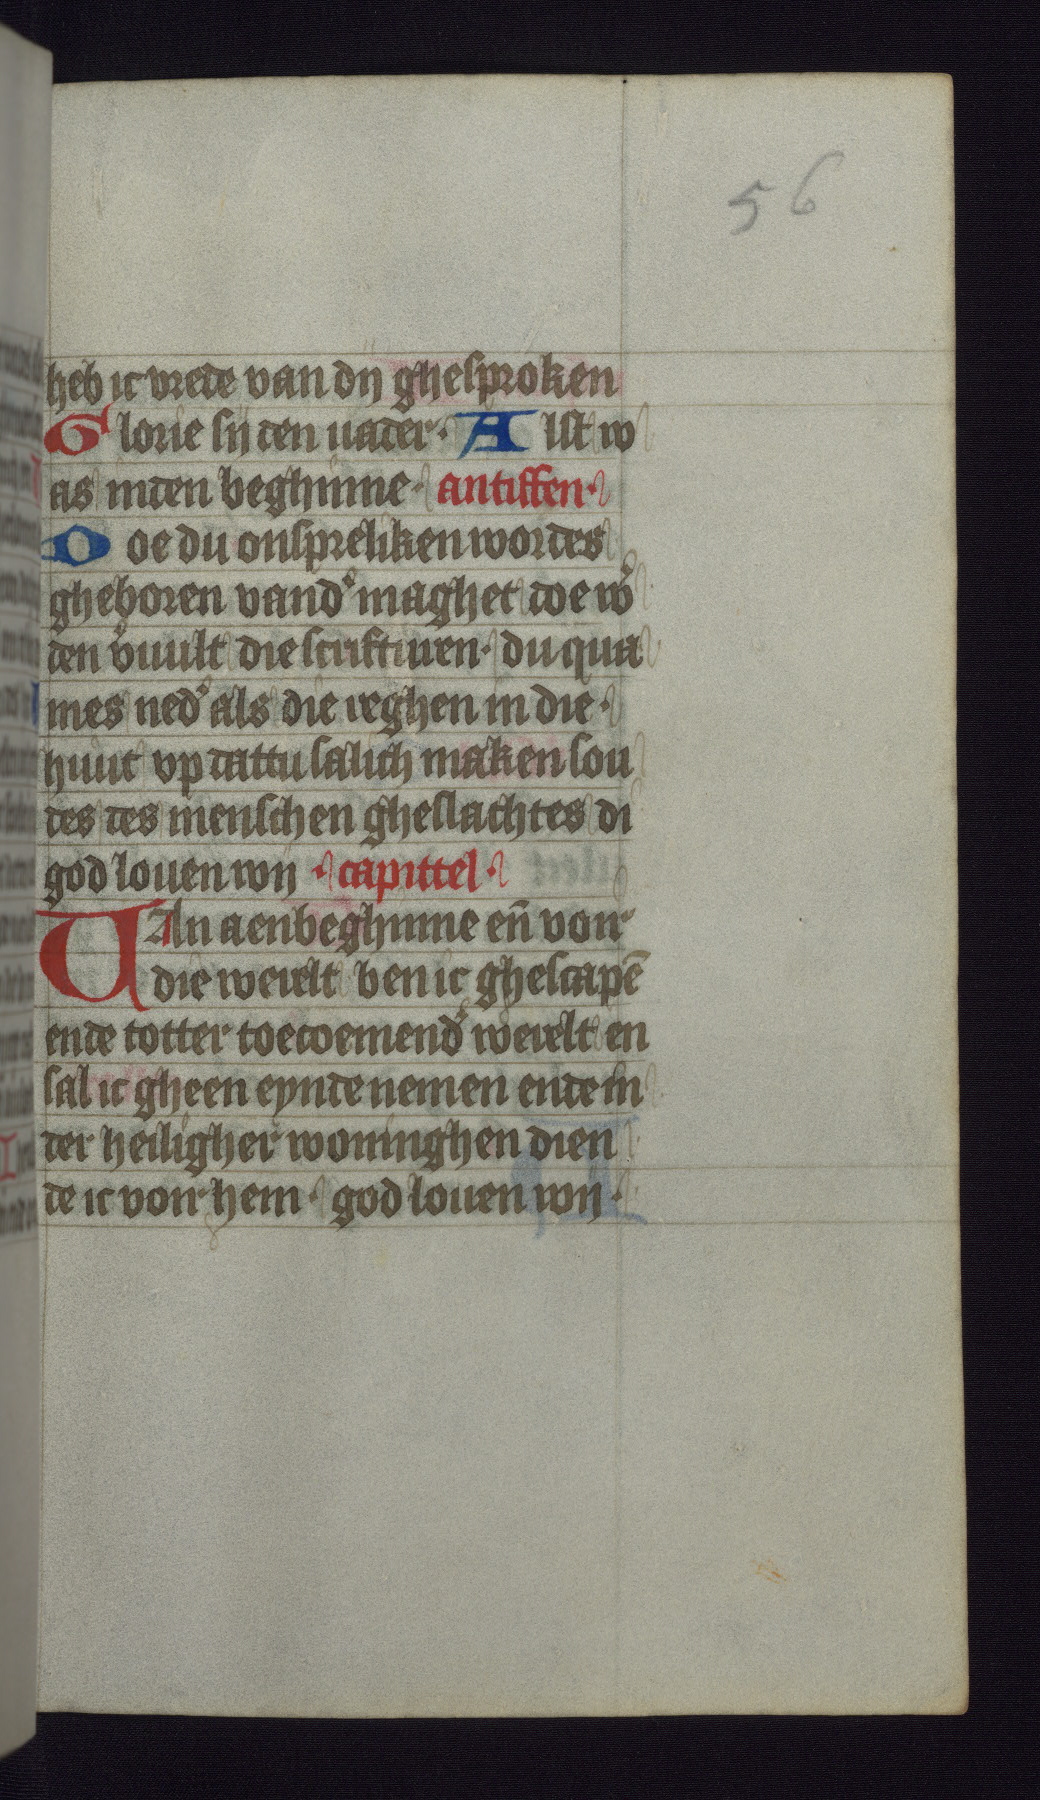 56
heb ic vrede van dij ghesproken
Glorie sij den uader· Alst w
as inden beghinne· antiffen·
Doe du onspreliken wordes
gheboren vand' maghet doe w'
den v'uult die scrifturen· du qua
mes ned' als die reghen in die·
huut vp dattu salich maken sou
des des menschen gheslachtes di
god louen wij · capittel·
VAn aenbeghinne en̄ voir
die werelt ben ic ghescapē
ende totter toecoemend' werelt en
sal ic gheen eynde nemen ende in
der heiligher woninghen dien
de ic voir hem· god louen wij·